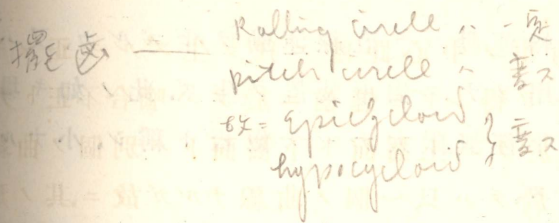 擺歯 —— Rolling circle ハ 一定
Pitch circle ハ 変ス
故ニ Epicycloid } 変ス
hypocycloid